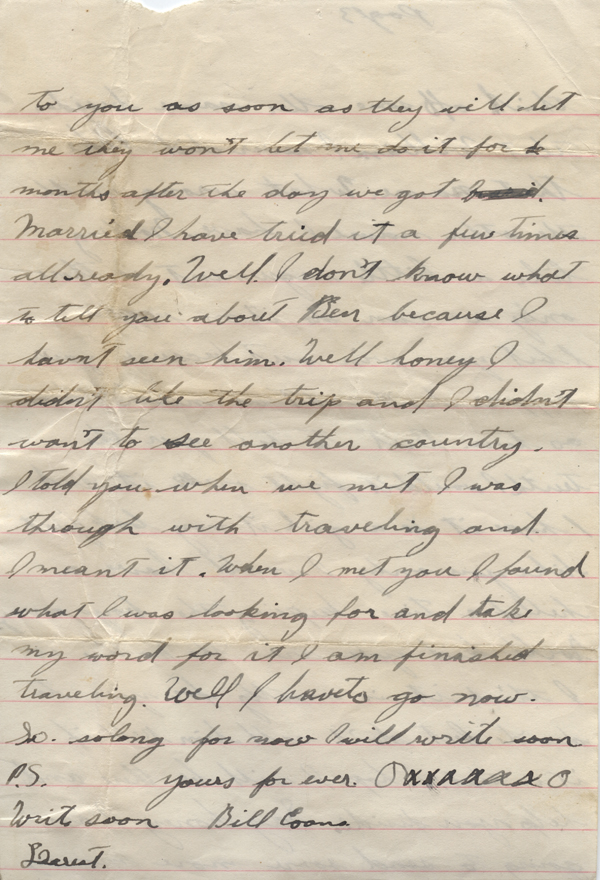 to you as soon as they will let
me they won't let me do it for 6
months after the day we got
Married I have tried it a few times
all-ready. Well I don't know what
to tell you about Ben because I
havnt seen him. Well honey I
didn't like the trip and I didn't
want to see another country.
I told you when we met I was
through with traveling and
I meant it. When I met you I found
what I was looking for and take
my word for it I am finished
traveling. Well I haveto go now.
So. solong for now I will write soon
P.S. yours for ever. Oxxxxxxxo
Write soon Bill Coons